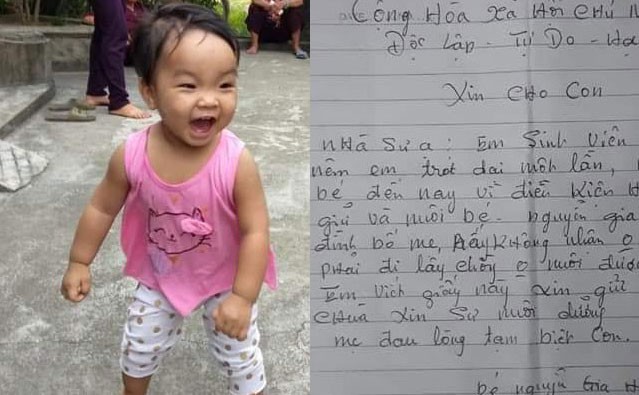 Cộng Hòa Xã Hội Chủ N
Độc Lập - Tự Do - Hạ
Xin cho con
nhà sư ạ: Em Sinh Viên
nên em trót dại một lần,
bé đến nay vì điều kiên
giữ và nuôi bé. nguyễn gia
đình bố mẹ, ấy không nhân
phải đi lấy chồng nuôi được
Em viết giấy này xin gửi
chùa xin sư nuôi dưỡng
mẹ đau lòng tạm biệt con.
bé nguyễn gia H